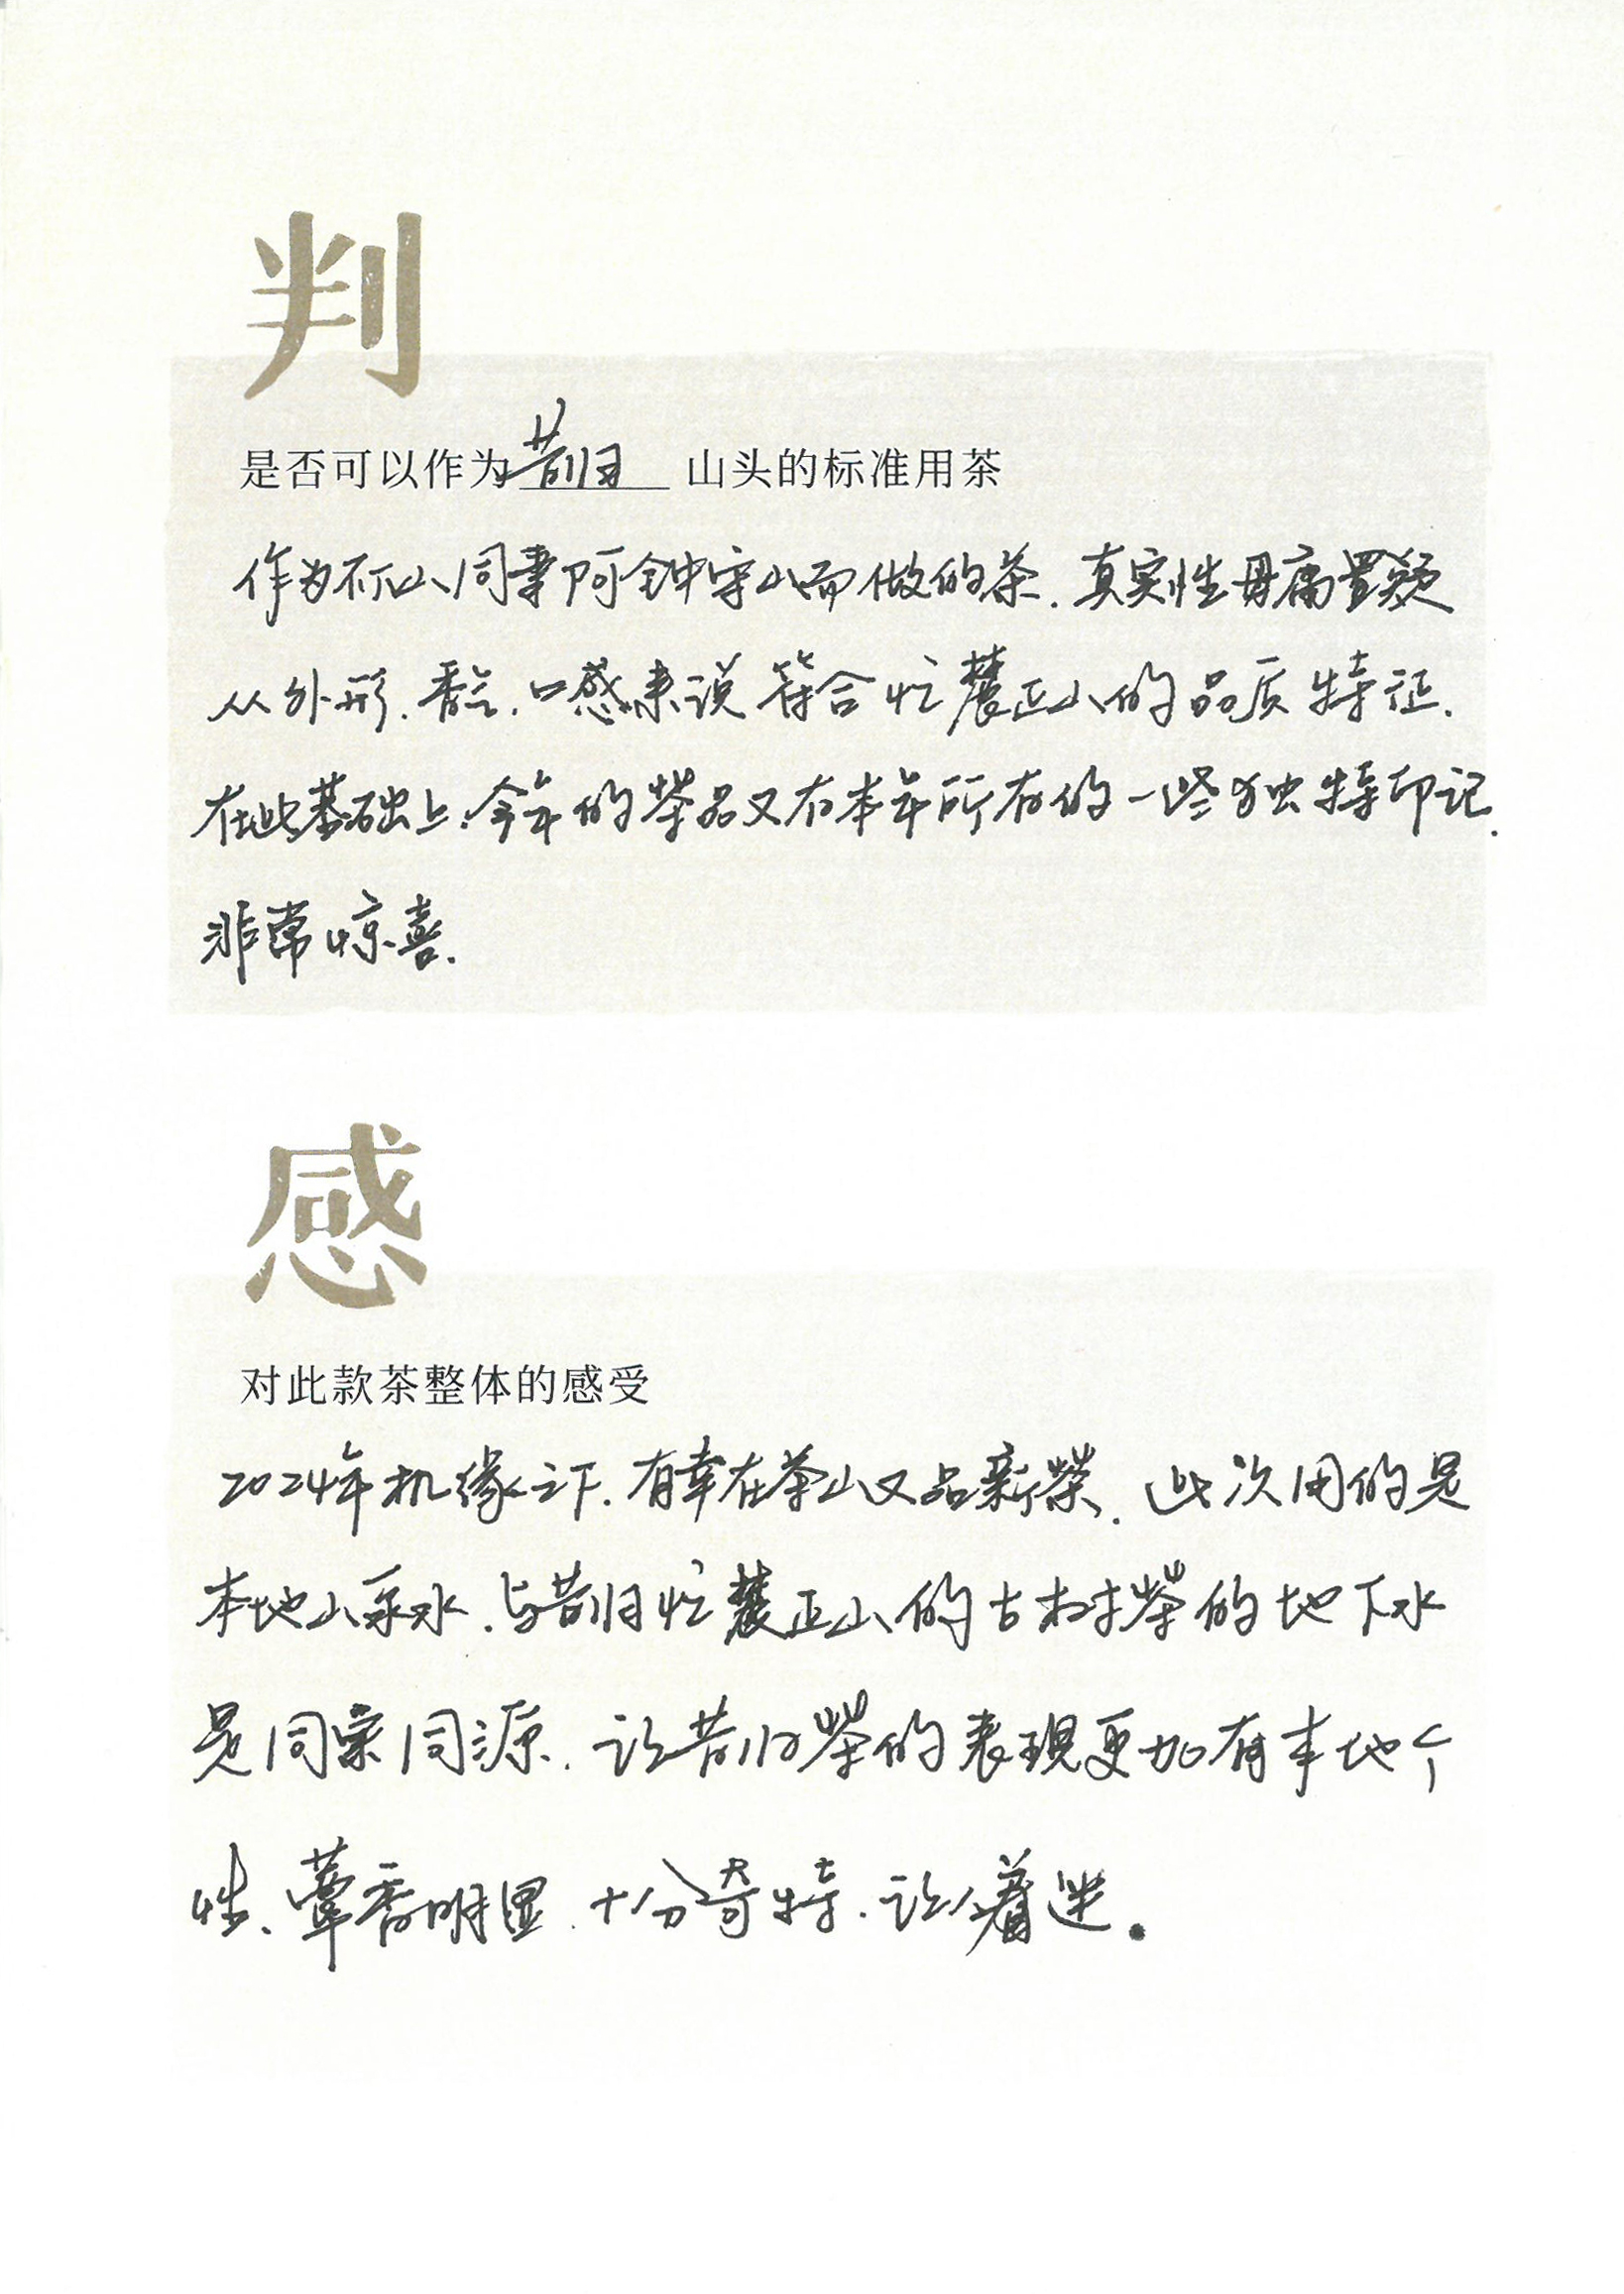 判
是否可以作为 昔归 山头的标准用茶
作为不仅山同事阿钟守山而做的茶.真实性毋庸置疑
从外形.香气.口感来说符合忙麓正山的品质特征.
在此基础上.今年的茶品又有本年所有的一些独特印记.
非常惊喜.
感
对此款茶整体的感受
2024年机缘之下.有幸在茶山又品新茶.此次用的是
本地山泉水.与昔归忙麓正山的古树茶的地下水
是同宗同源.让昔归茶的表现更加有本地个
性、蕈香明显.十分奇特.让人着迷。